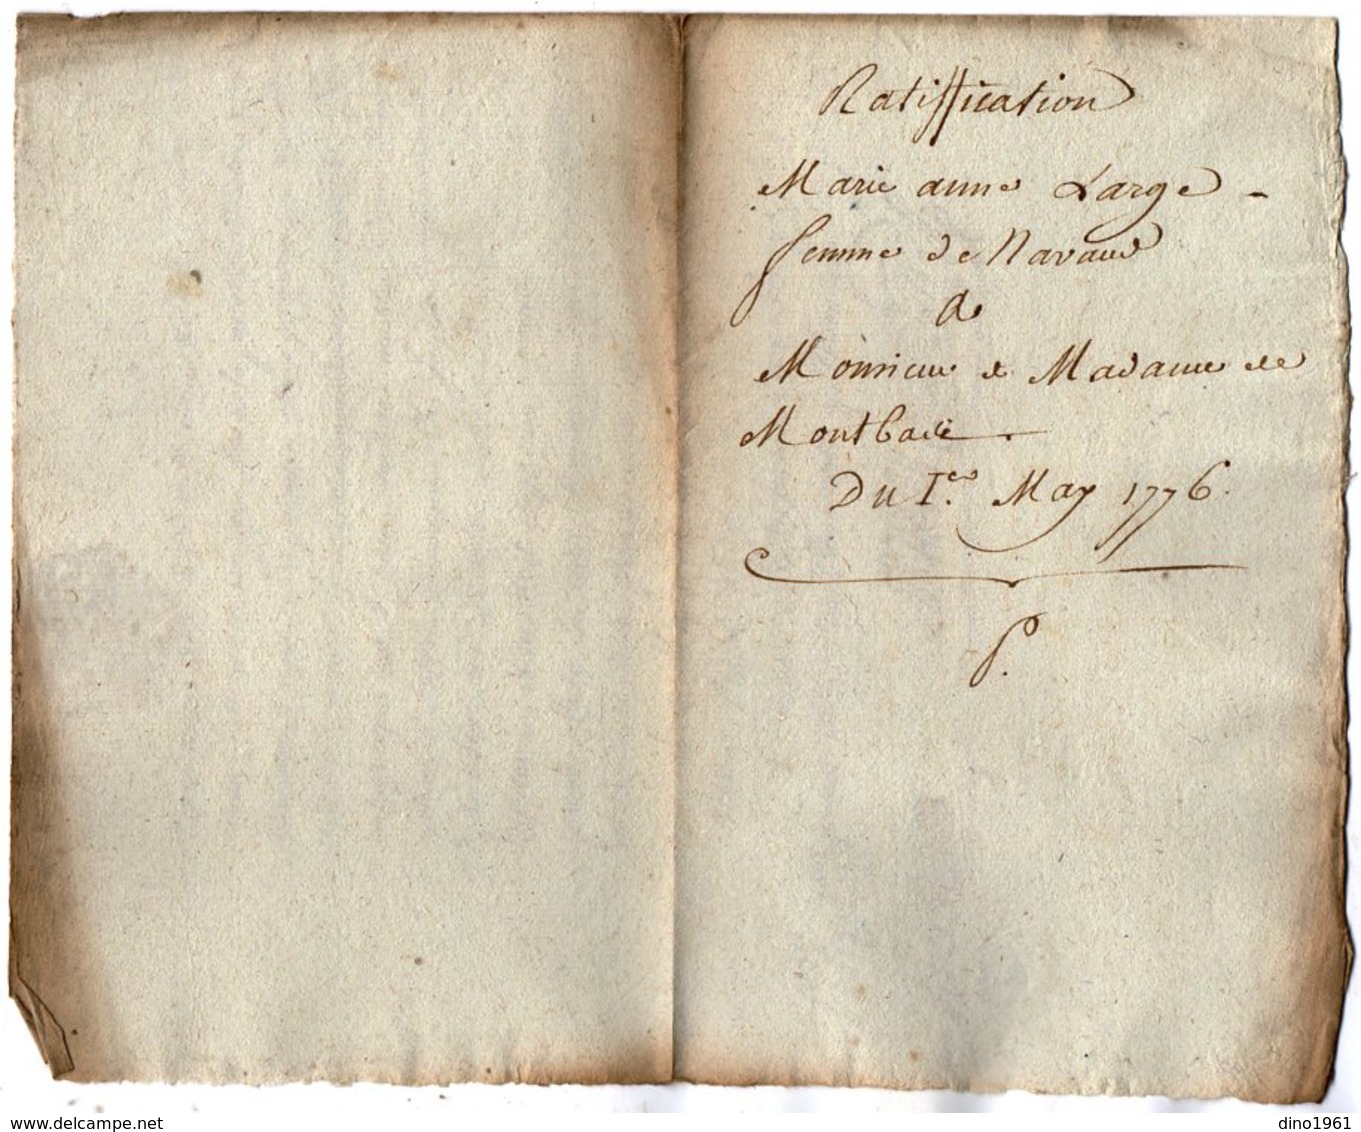 Ratiffication
Marie anne Large -
femme de Navaud
A
Monsieur & Madame de
Montbadé
Du 1er. May 1776.
P.
www.delcampe.net
dino1961